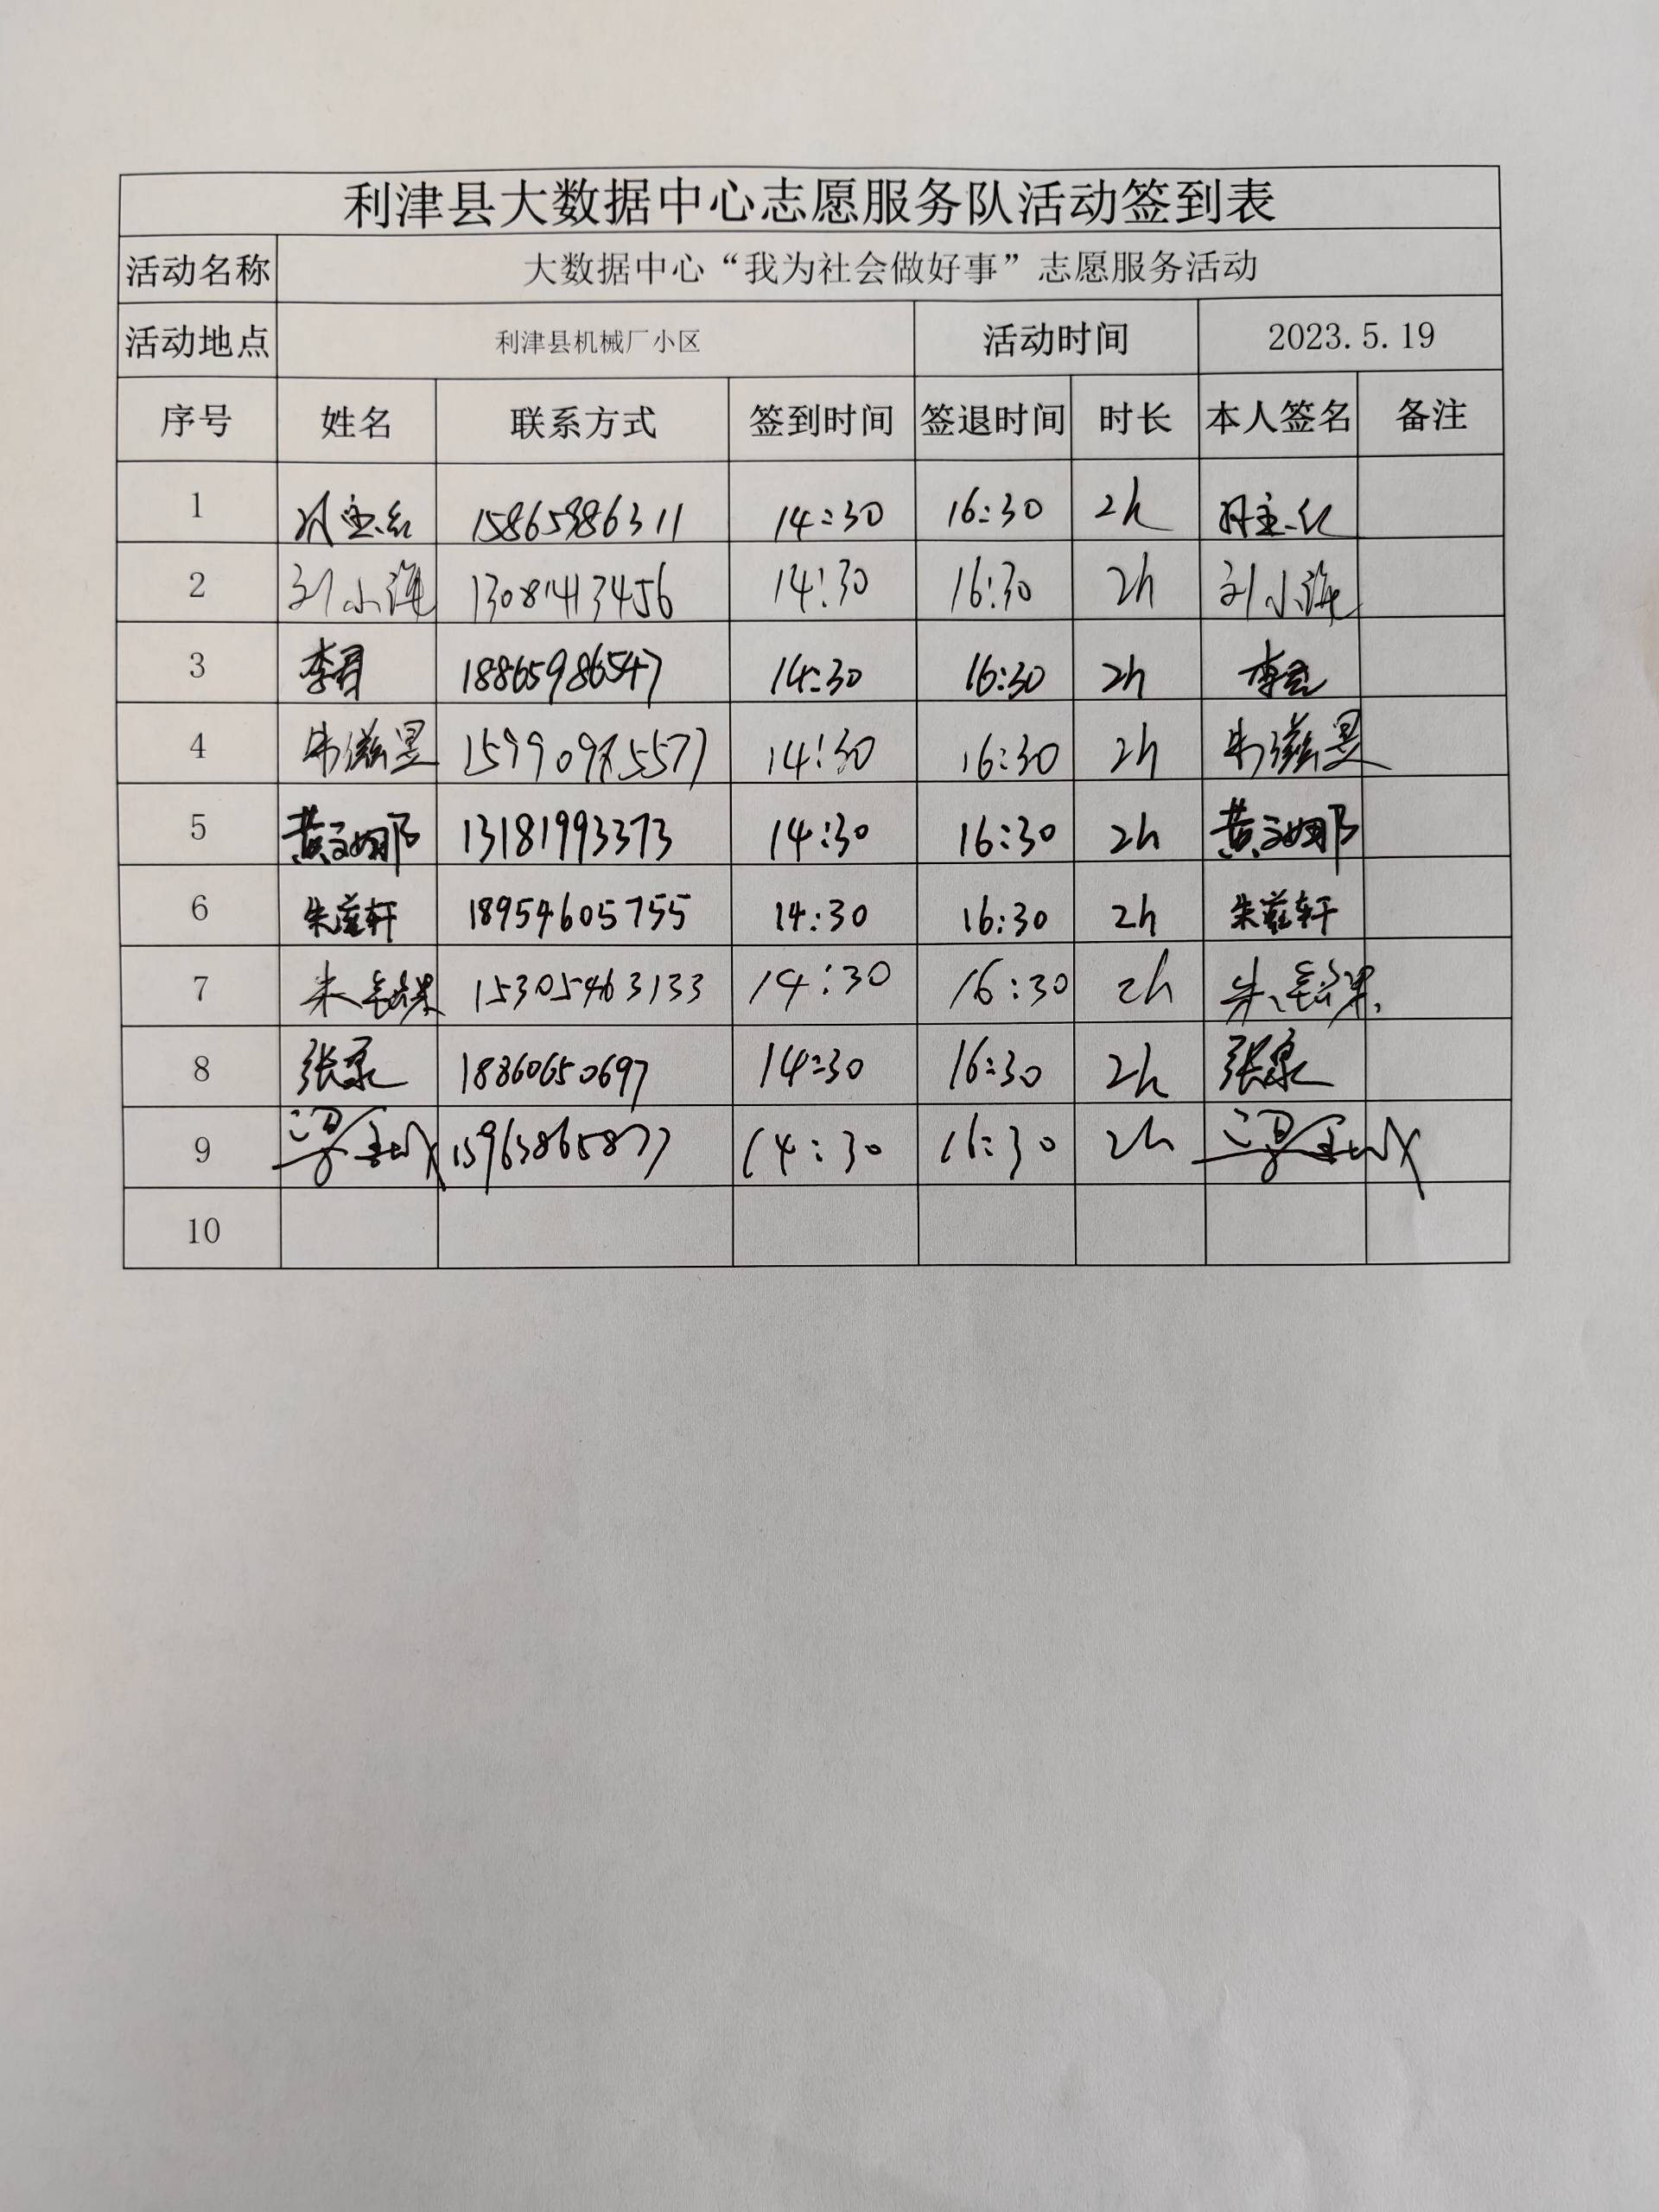 利津县大数据中心志愿服务队活动签到表
活动名称 大数据中心“我为社会做好事”志愿服务活动
活动地点 利津县机械厂小区 活动时间 2023.5.19
序号 姓名 联系方式 签到时间 签退时间 时长 本人签名 备注
1 15865986311 14:30 16:30 2h
2 刘小海 13081413456 14:30 16:30 2h 刘小海
3 李君 18865986547 14:30 16:30 2h 李君
4 14:30 16:30 2h
5 黄文娜 13181993373 14:30 16:30 2h 黄文娜
6 朱益轩 18954605755 14:30 16:30 2h 朱益轩
7 朱 15305463133 14:30 16:30 2h 朱
8 张泉 18860650697 14:30 16:30 2h 张泉
9 梁 15963865877 14:30 16:30 2h 梁
10